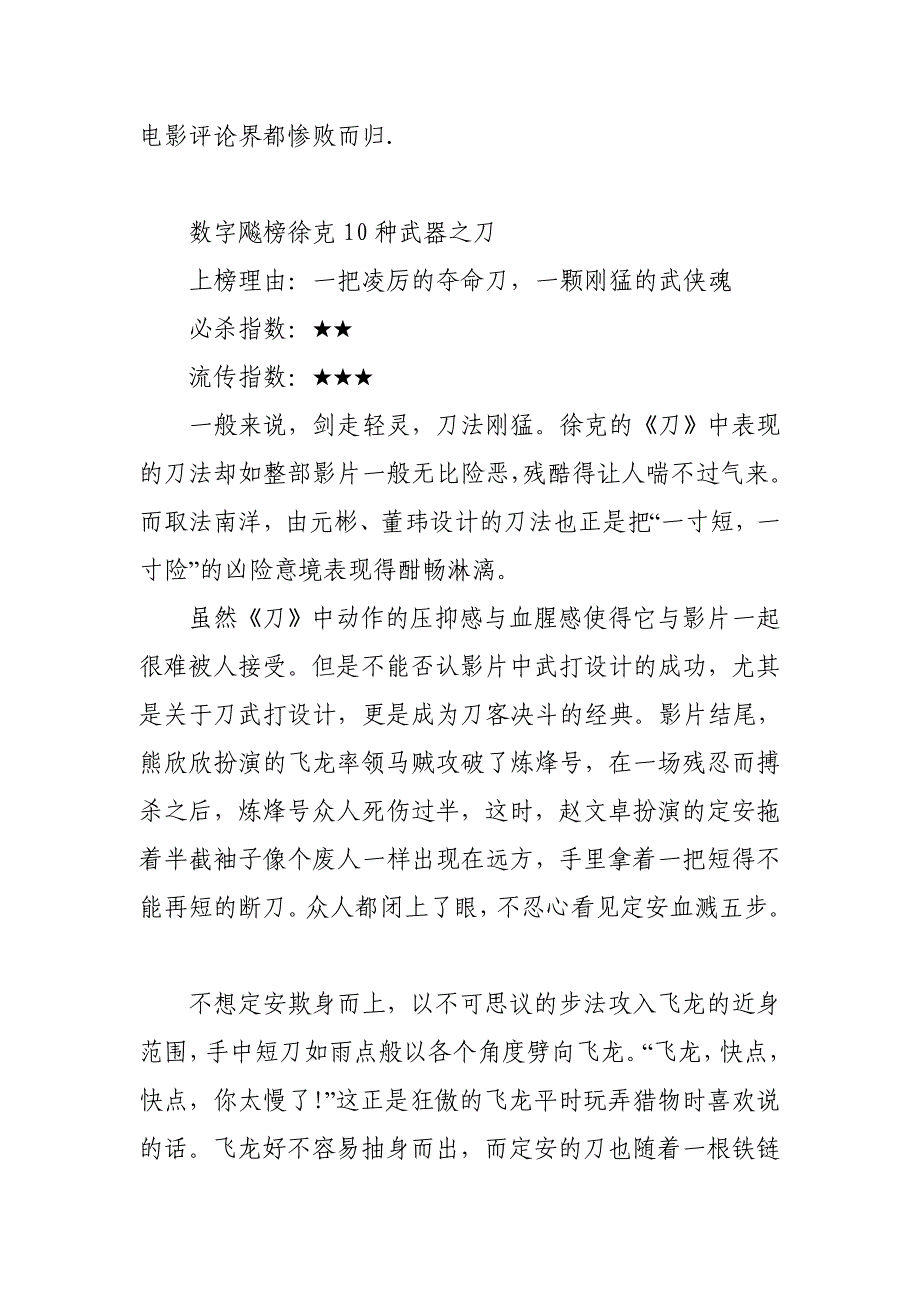 电影评论界都惨败而归.
数字飚榜徐克10种武器之刀
上榜理由：一把凌厉的夺命刀，一颗刚猛的武侠魂
必杀指数：★★
流传指数：★★★
一般来说，剑走轻灵，刀法刚猛。徐克的《刀》中表现
的刀法却如整部影片一般无比险恶，残酷得让人喘不过气来。
而取法南洋，由元彬、董玮设计的刀法也正是把“一寸短，一
寸险”的凶险意境表现得酣畅淋漓。
虽然《刀》中动作的压抑感与血腥感使得它与影片一起
很难被人接受。但是不能否认影片中武打设计的成功，尤其
是关于刀武打设计，更是成为刀客决斗的经典。影片结尾，
熊欣欣扮演的飞龙率领马贼攻破了炼烽号，在一场残忍而搏
杀之后，炼烽号众人死伤过半，这时，赵文卓扮演的定安拖
着半截袖子像个废人一样出现在远方，手里拿着一把短得不
能再短的断刀。众人都闭上了眼，不忍心看见定安血溅五步。
不想定安欺身而上，以不可思议的步法攻入飞龙的近身
范围，手中短刀如雨点般以各个角度劈向飞龙。“飞龙，快点，
快点，你太慢了!”这正是狂傲的飞龙平时玩弄猎物时喜欢说
的话。飞龙好不容易抽身而出，而定安的刀也随着一根铁链